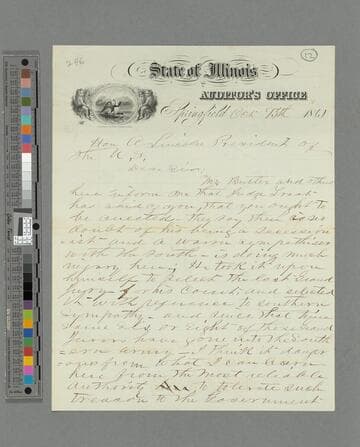 266
12
State of Illinois
AUDITOR'S OFFICE
Springfield Oct 13th 1861
Hon A Lincoln President of
the U. S.
Dear Sir,
Mr Butler and others
here inform me that Judge
has said of you, that you ought to
be arrested. They say there is no
doubt of his being a secession
ist and a warm sympathiser
with the South is doing much
injury here; He took it upon
himself to select the last Grand
Jury of his County, and selected
it with reference to southern
sympathy and since that time
some six or eight of these Grand
Jurors have gone into the South
ern Army. I think it danger
ous from what I can learn
here from the most reliable
authority to tolerate such
treason to the Government